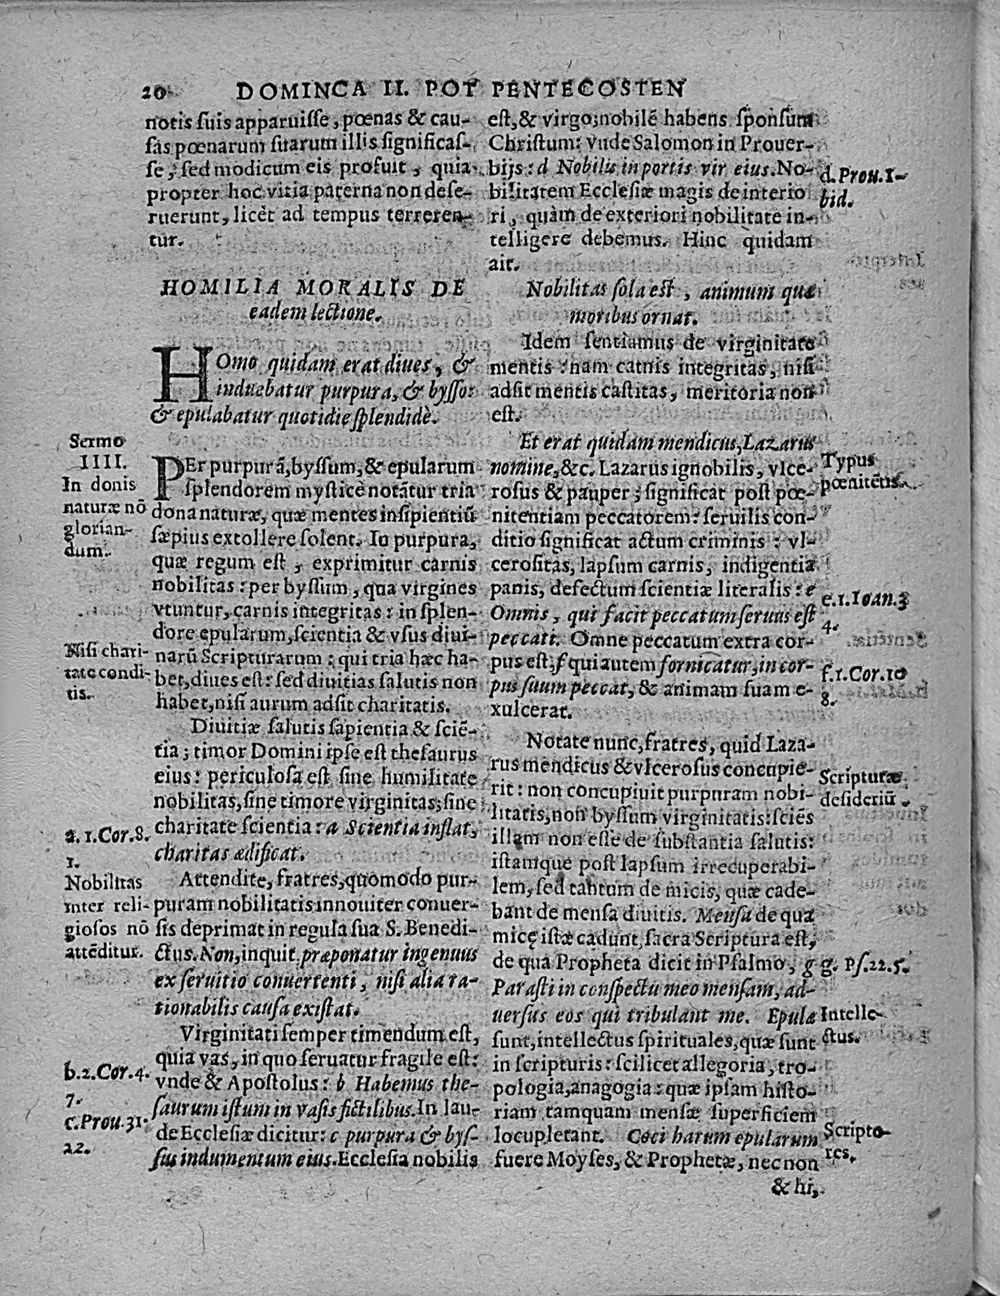 20 DOMINCA II. POT PENTECOSTEN
notis suis apparuisse, pœnas & cau-
sas pœnarum suarum illis significas-
se; sed modicum eis profuit, quia
propter hoc vitia paterna non dese-
ruerunt, licèt ad tempus terreren-
tur.
HOMILIA MORALIS DE
eadem lectione.
HOmo quidam erat diues, &
induebatur purpura, & bysso:
& epulabatur quotidie splendidè.
Sermo
IIII.
In donis
naturæ nō
glorian-
dum.
PEr purpurā, byssum, & epularum
splendorem mysticè notātur tria
dona naturæ, quæ mentes insipientiū
sæpius extollere solent. In purpura,
quæ regum est, exprimitur carnis
nobilitas: per byssum, qua virgines
vtuntur, carnis integritas: in splen-
dore epularum, scientia & vsus diui-
narū Scripturarum: qui tria hæc ha-
bet, diues est: sed diuitias salutis non
habet, nisi aurum adsit charitatis.
Nisi chari-
tate condi-
tis.
Diuitiæ salutis sapientia & sciē-
tia; timor Domini ipse est thesaurus
eius: periculosa est sine humilitate
nobilitas, sine timore virginitas; sine
charitate scientia: a Scientia inflat,
charitas ædificat.
a. 1. Cor. 8.
1.
Nobilitas
inter reli-
giosos nō
attēditur.
Attendite, fratres, quomodo pur-
puram nobilitatis innouiter conuer-
sis deprimat in regula sua S. Benedi-
ctus. Non, inquit, præponatur ingenuus
ex seruitio conuertenti, nisi alia ra-
tionabilis causa existat.
Virginitati semper timendum est,
quia vas, in quo seruatur fragile est:
vnde & Apostolus: b Habemus the-
saurum istum in vasis fictilibus. In lau-
de Ecclesiæ dicitur: c purpura & bys-
sus indumentum eius. Ecclesia nobilis
b. 2. Cor. 4.
7.
c. Prou. 31.
22.
est, & virgo; nobilē habens sponsum
Christum: vnde Salomon in Prouer-
bijs: d Nobilis in portis vir eius. No-
bilitatem Ecclesiæ magis de interio
ri, quàm de exteriori nobilitate in-
telligere debemus. Hinc quidam
ait.
d. Prou. 1-
bid.
Nobilitas sola est, animum quæ
moribus ornat.
Idem sentiamus de virginitate
mentis: nam carnis integritas, nisi
adsit mentis castitas, meritoria non
est.
Et erat quidam mendicus, Lazarus
nomine, &c. Lazarus ignobilis, vlce-
rosus & pauper; significat post pœ-
nitentiam peccatorem: seruilis con-
ditio significat actum criminis: vl-
cerositas, lapsum carnis, indigentia
panis, defectum scientiæ literalis: e
Omnis, qui facit peccatum seruus est
peccati. Omne peccatum extra cor-
pus est; f qui autem fornicatur, in cor-
pus suum peccat, & animam suam e-
xulcerat.
Typus
pœnitētis.
e. 1. Ioan. 3
4.
f. 1. Cor. 10
8.
Notate nunc, fratres, quid Laza-
rus mendicus & vlcerosus concupie-
rit: non concupiuit purpuram nobi-
litatis, non byssum virginitatis: sciēs
illam non esse de substantia salutis:
istamque post lapsum irrecuperabi-
lem, sed tantum de micis, quæ cade-
bant de mensa diuitis. Mensa de qua
micę istæ cadunt, sacra Scriptura est,
de qua Propheta dicit in Psalmo, g
Parasti in conspectu meo mensam, ad-
uersus eos qui tribulant me. Epulæ
sunt, intellectus spirituales, quæ sunt
in scripturis: scilicet allegoria, tro-
pologia, anagogia: quæ ipsam histo-
riam tamquam mensæ superficiem
locupletant. Coci harum epularum
fuere Moyses, & Prophetæ, nec non
& hi,
Scripturæ
desideriū.
g. Ps. 22. 5.
Intelle-
ctus.
Scripto-
res.